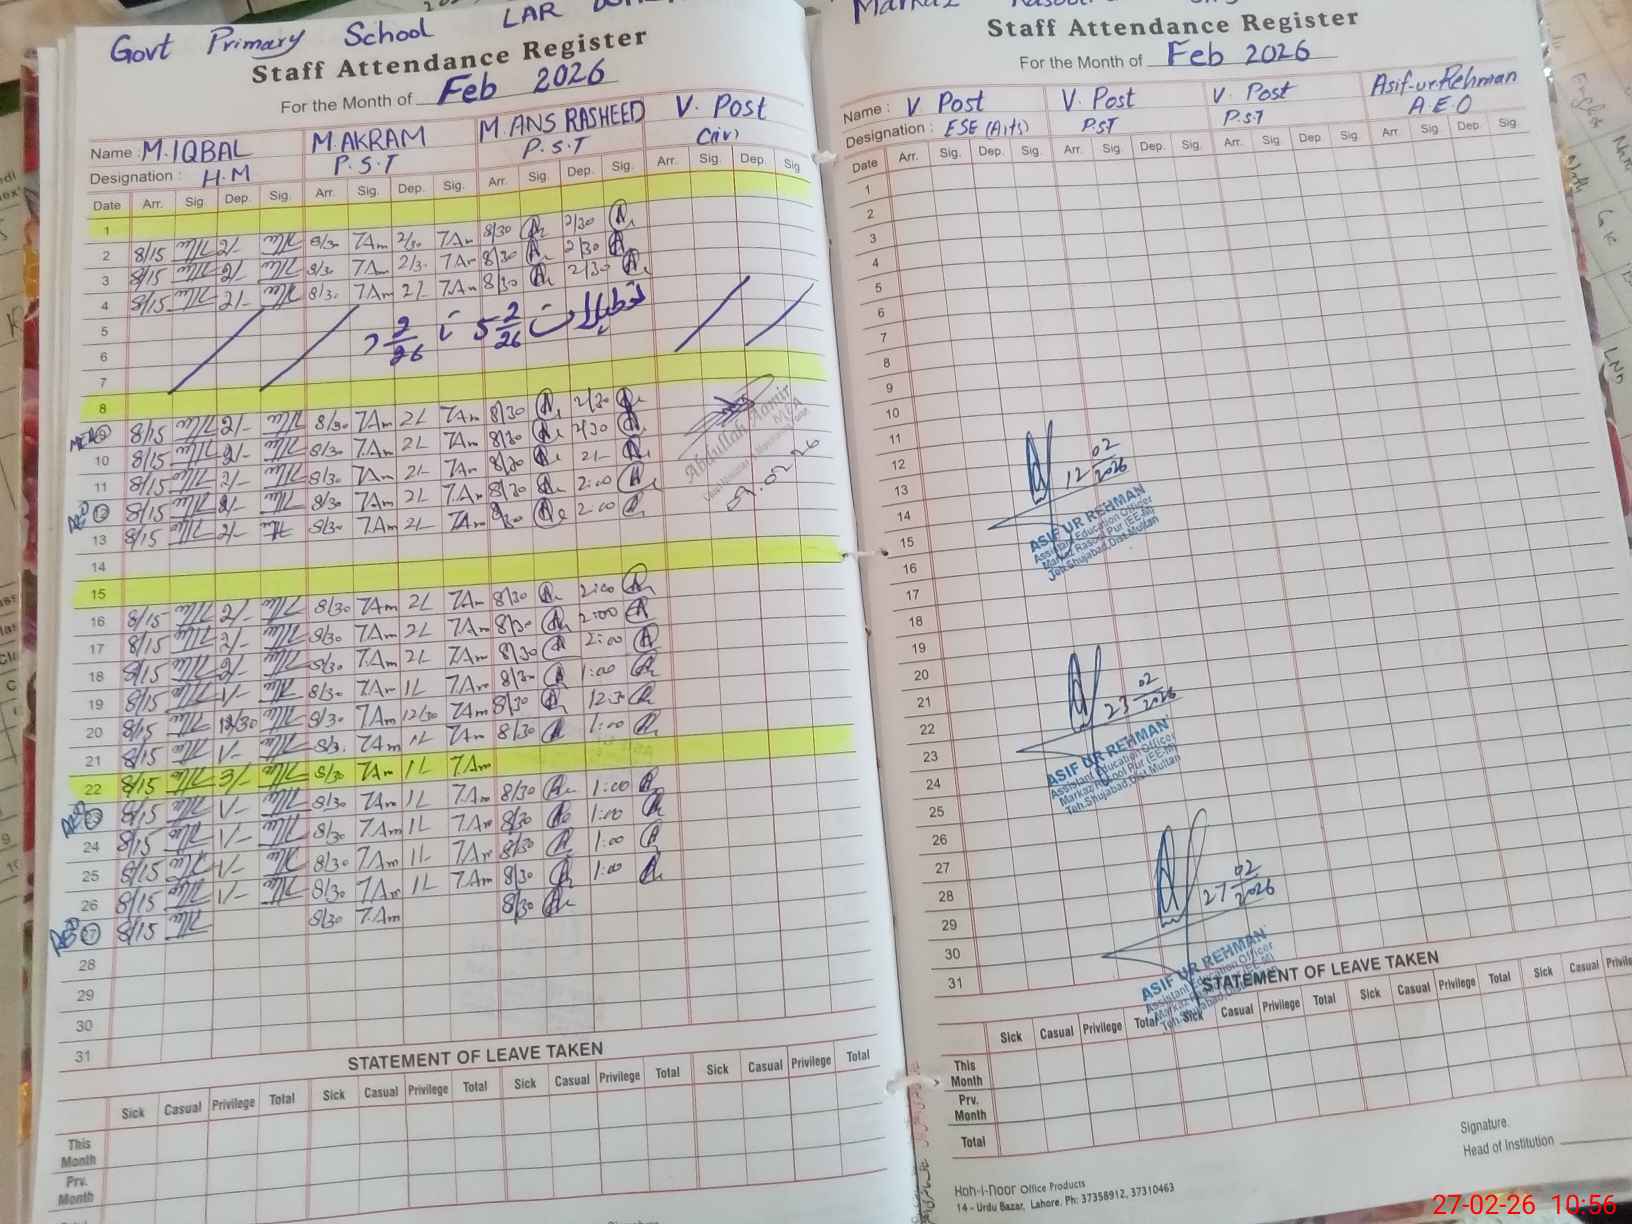 Govt Primary School LAR
Staff Attendance Register
For the Month of Feb 2026
Name : M.IQBAL M.AKRAM M.ANS RASHEED V. Post
Designation : H.M P.S.T P.S.T (iv)
Date Arr. Sig. Dep. Sig. Arr. Sig. Dep. Sig. Arr. Sig. Dep. Sig. Arr. Sig. Dep. Sig.
1
2 8/15 2/- 8/30 7Am 2/30 7Am 8/30 2/30
3 8/15 2/- 8/30 7Am 2/30 7Am 8/30 2/30
4 8/15 2/- 8/30 7Am 2L 7Am 8/30 2/30
5 تعطیلات 5 2/26 تا 2/26
6
7
8
8/15 2/- 8/30 7Am 2L 7Am 8/30 2/30
10 8/15 2/- 8/30 7Am 2L 7Am 8/30 2/30
11 8/15 2/- 8/30 7Am 2L 7Am 8/30 2L
AEO 12 8/15 2/- 8/30 7Am 2L 7Am 8/30 2:00
13 8/15 2/- 8/30 7Am 2L 7Am 8/30 2:00
14
15
16 8/15 2/- 8/30 7Am 2L 7Am 8/30 2:00
17 8/15 2/- 8/30 7Am 2L 7Am 8/30 2:00
18 8/15 2/- 8/30 7Am 2L 7Am 8/30 2:00
19 8/15 1/- 8/30 7Am 1L 7Am 8/30 1:00
20 8/15 12/30 8/30 7Am 12/30 7Am 8/30 12:30
21 8/15 1/- 8/30 7Am 1L 7Am 8/30 1:00
22 8/15 3/- 8/30 7Am 1L 7Am
AEO 23 8/15 1/- 8/30 7Am 1L 7Am 8/30 1:00
24 8/15 1/- 8/30 7Am 1L 7Am 8/30 1:00
25 8/15 1/- 8/30 7Am 1L 7Am 8/30 1:00
26 8/15 1/- 8/30 7Am 1L 7Am 8/30 1:00
AEO 27 8/15 8/30 7Am 8/30
28
29
30
31
Abdullah Aamir
MEA
9.02.26
STATEMENT OF LEAVE TAKEN
Sick Casual Privilege Total Sick Casual Privilege Total Sick Casual Privilege Total Sick Casual Privilege Total
This Month
Prv. Month
Markaz
Staff Attendance Register
For the Month of Feb 2026
Name : V Post V. Post V. Post Asif-ur-Rehman
Designation : ESE (Arts) P.ST P.S.T A.E.O
Date Arr. Sig. Dep. Sig. Arr. Sig. Dep. Sig. Arr. Sig. Dep. Sig. Arr. Sig. Dep. Sig.
1
2
3
4
5
6
7
8
9
10
11
12
13
14
15
16
17
18
19
20
21
22
23
24
25
26
27
28
29
30
31
12 02/2026
ASIF UR REHMAN
Assistant Education Officer
Markaz Rasool Pur (EE-M)
Teh.Shujabad,Dist.Multan
23 02/2026
ASIF UR REHMAN
Assistant Education Officer
Markaz Rasool Pur (EE-M)
Teh.Shujabad,Dist.Multan
27 02/2026
ASIF UR REHMAN
Assistant Education Officer
STATEMENT OF LEAVE TAKEN
Sick Casual Privilege Total Sick Casual Privilege Total Sick Casual Privilege Total Sick Casual
This Month
Prv. Month
Total
Signature.
Head of Institution
Koh-i-Noor Office Products
14 - Urdu Bazar, Lahore. Ph: 37358912, 37310463
27-02-26 10:56